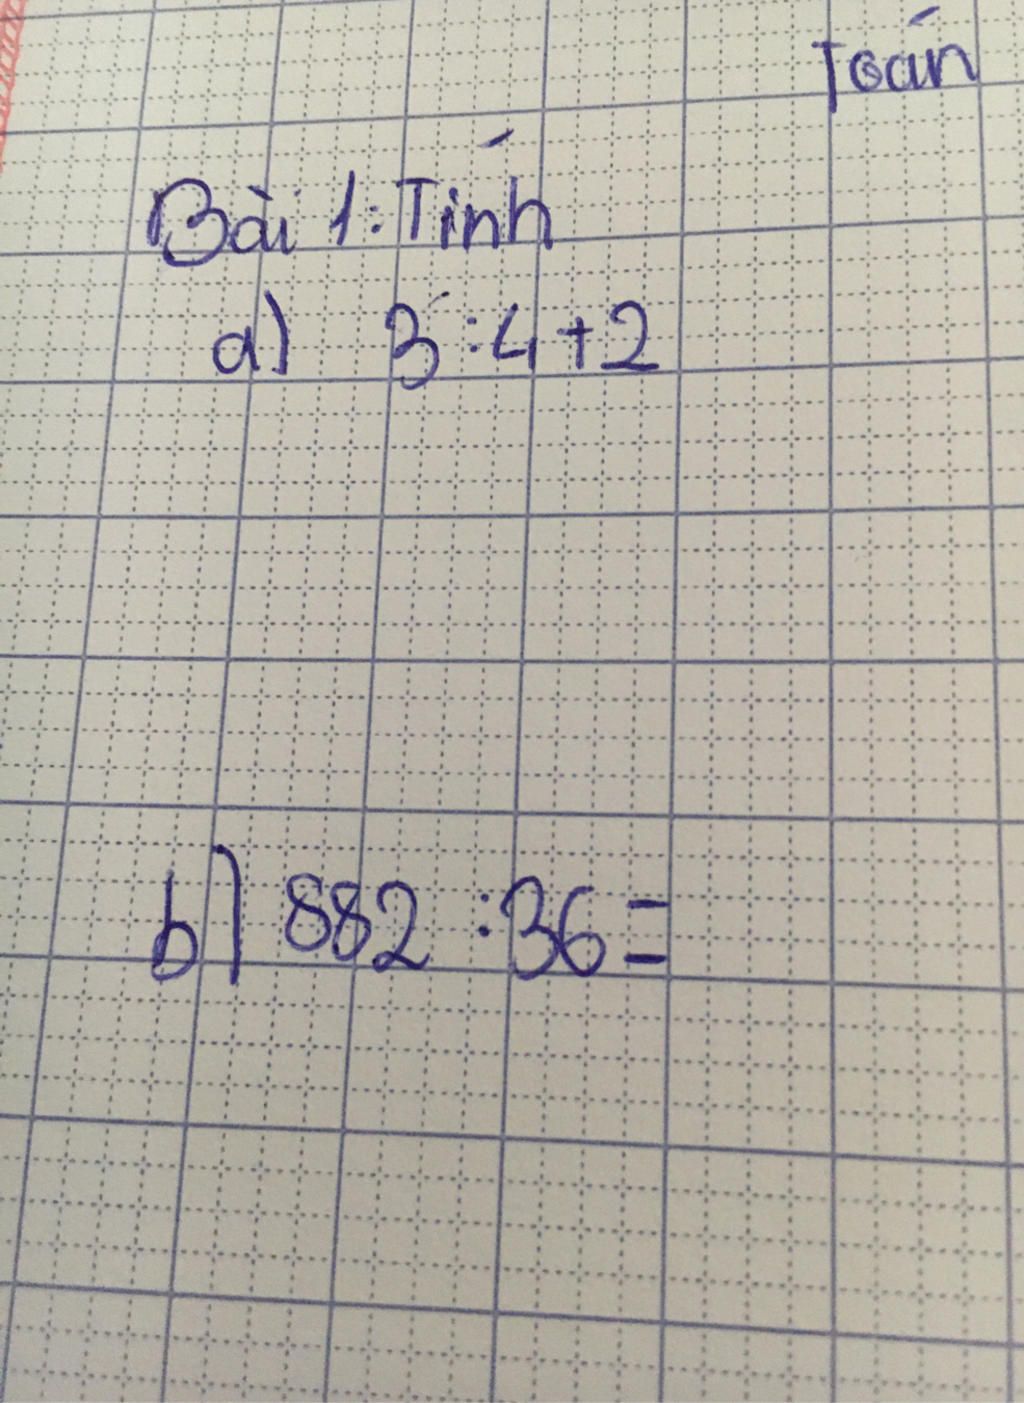 Toán
Bài 1: Tính
a) 3 : 4 + 2
b) 882 : 36 =